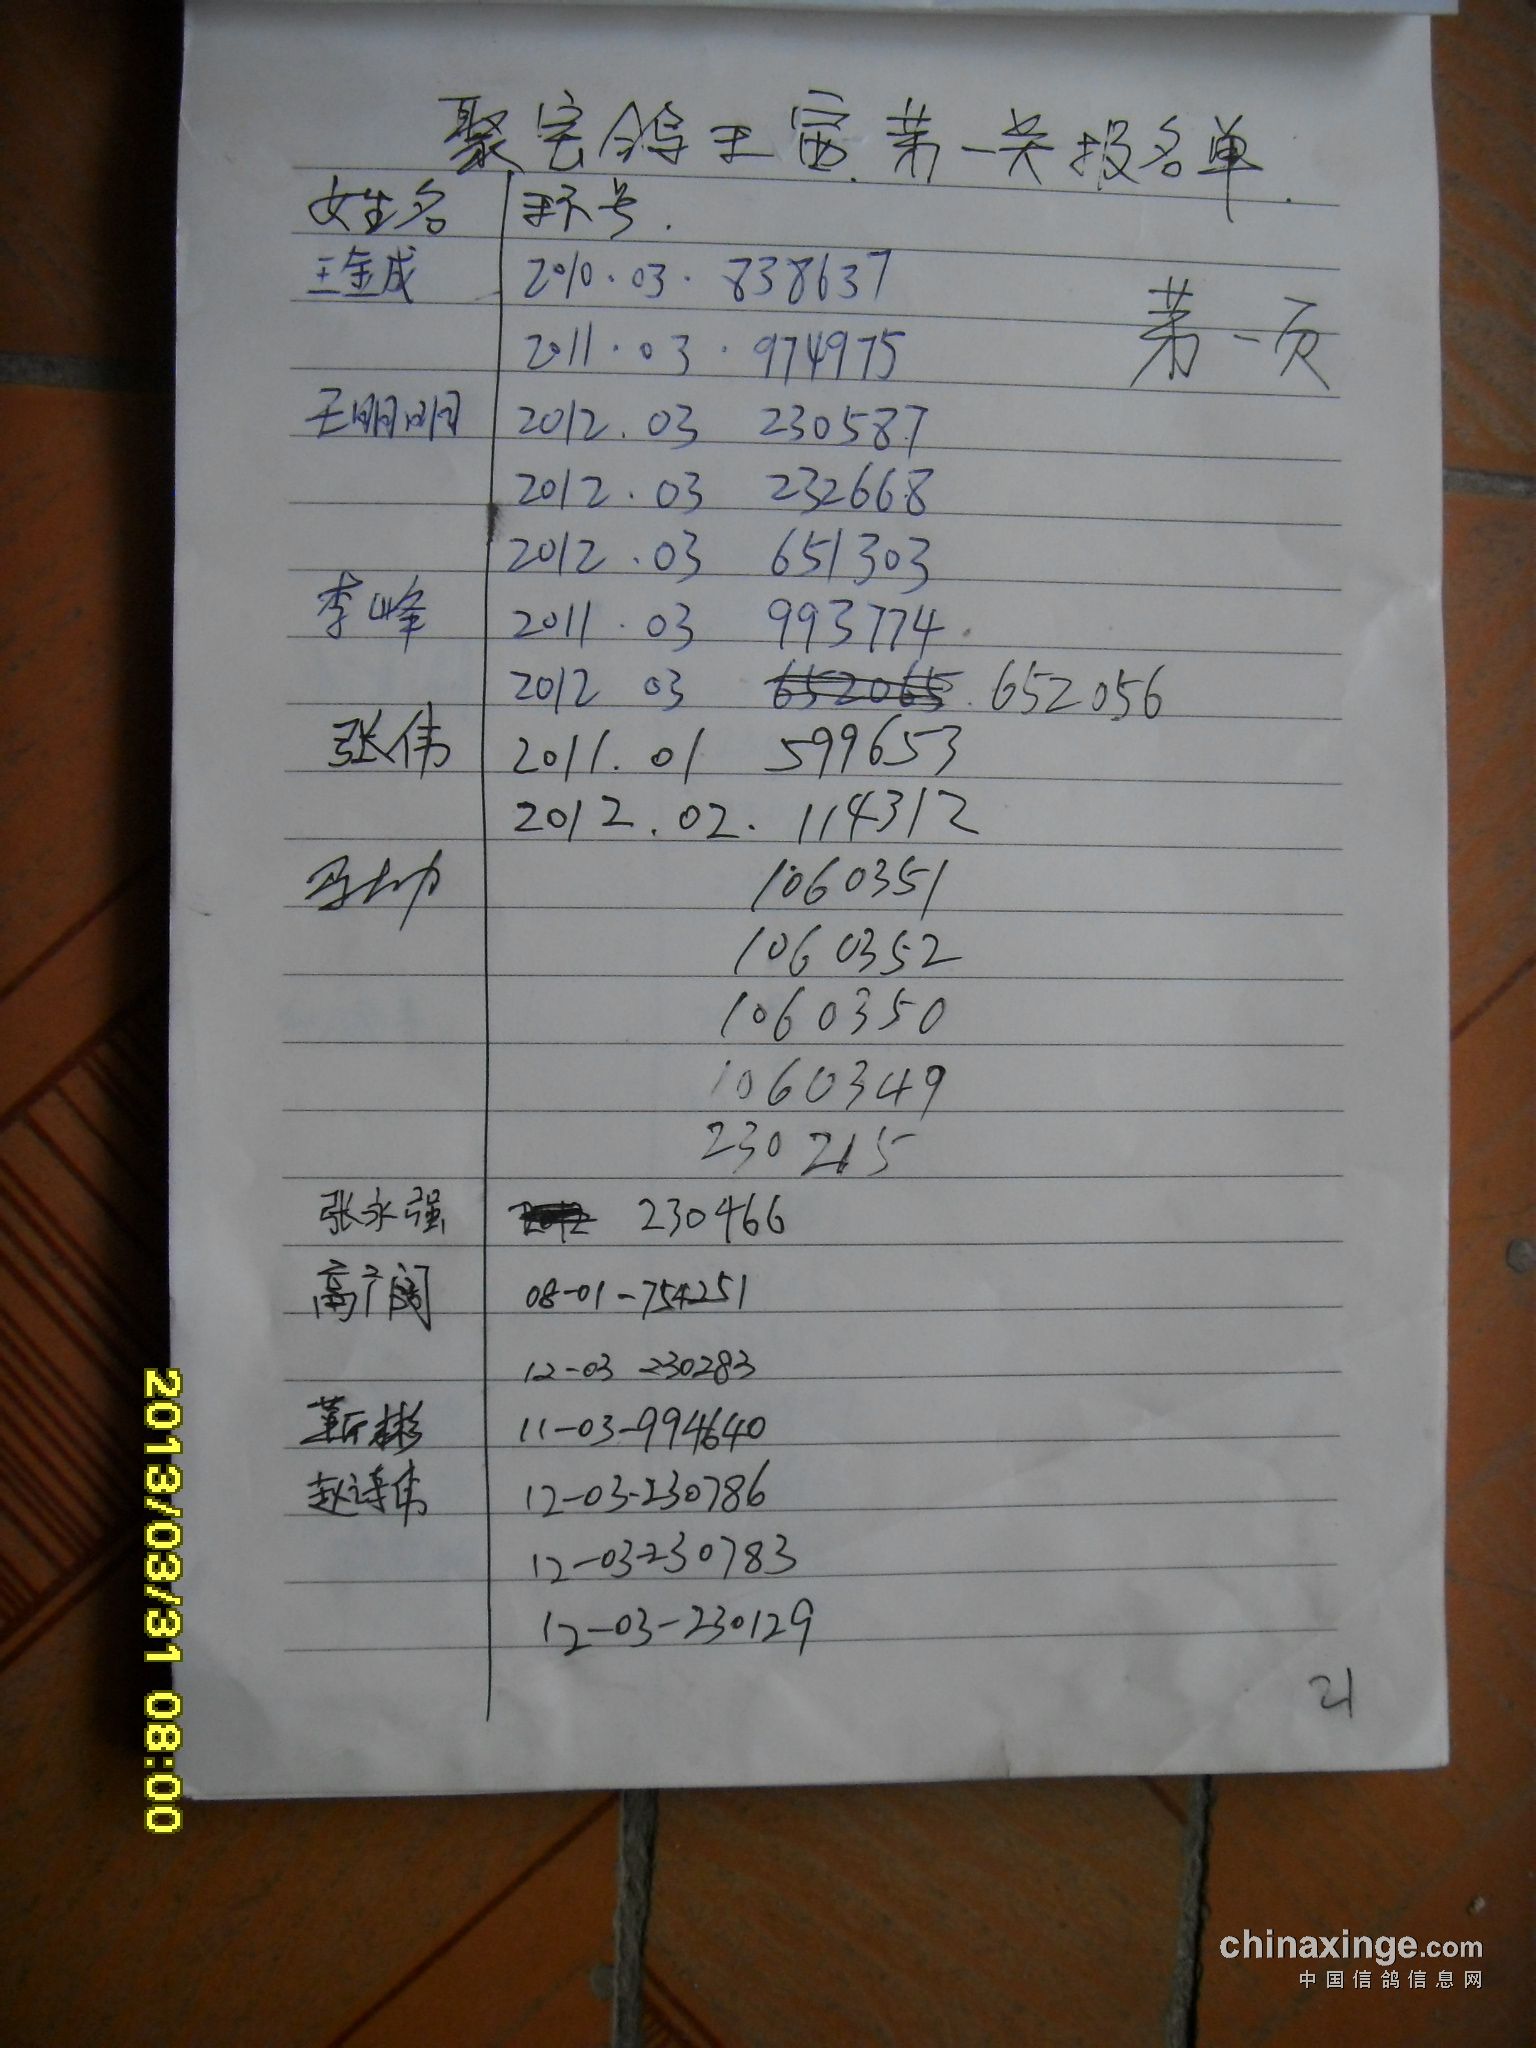 聚宏鸽王赛.第一关报名单.
姓名 环号.
第一页
王金成 2010.03.838637
2011.03.974975
王明明 2012.03 230587
2012.03 232668
2012.03 651303
李峰 2011.03 993774.
2012 03 652065.652056
张伟 2011.01 599653
2012.02.114312
马 1060351
1060352
1060350
1060349
230215
张永强 2012 230466
高广阔 08-01-754251
12-03 230283
靳彬 11-03-994640
赵诗伟 12-03-230786
12-03230783
12-03-230129
21
2013/03/31 08:00
chinaxinge.com
中国信鸽信息网